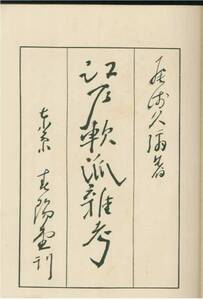 尾崎久彌著
江戸軟派雜考
東京 春陽堂刊